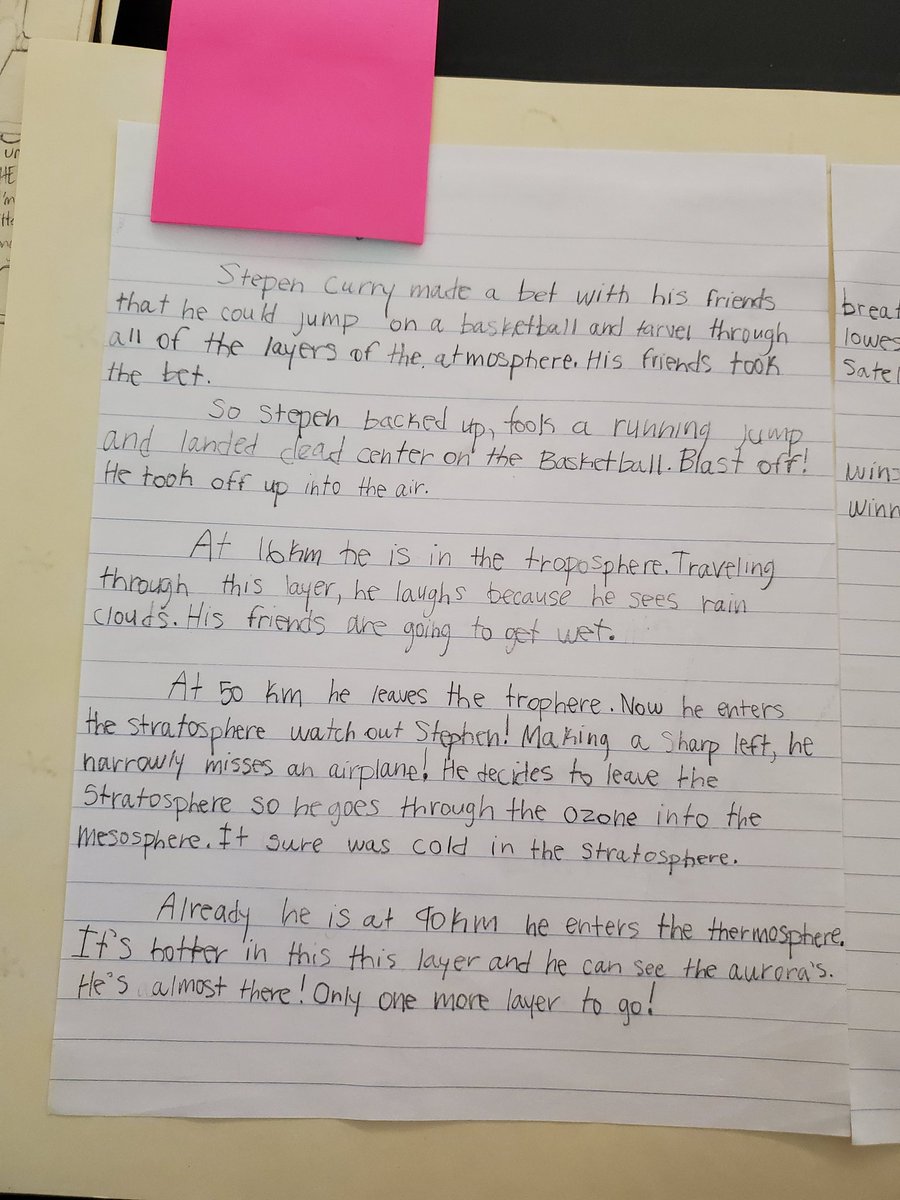 Stepen Curry made a bet with his friends
that he could jump on a basketball and tarvel through
all of the layers of the atmosphere. His friends took
the bet.
So Stepen backed up, took a running jump
and landed dead center on the Basketball. Blast off!
He took off up into the air.
At 16km he is in the troposphere. Traveling
through this layer, he laughs because he sees rain
clouds. His friends are going to get wet.
At 50 km he leaves the trophere. Now he enters
the stratosphere watch out Stephen! Making a sharp left, he
narrowly misses an airplane! He decides to leave the
Stratosphere so he goes through the ozone into the
mesosphere. It sure was cold in the stratosphere.
Already he is at 90km he enters the thermosphere.
It's hotter in this this layer and he can see the aurora's.
He's almost there! Only one more layer to go!
breat
lowes
Satel
winn